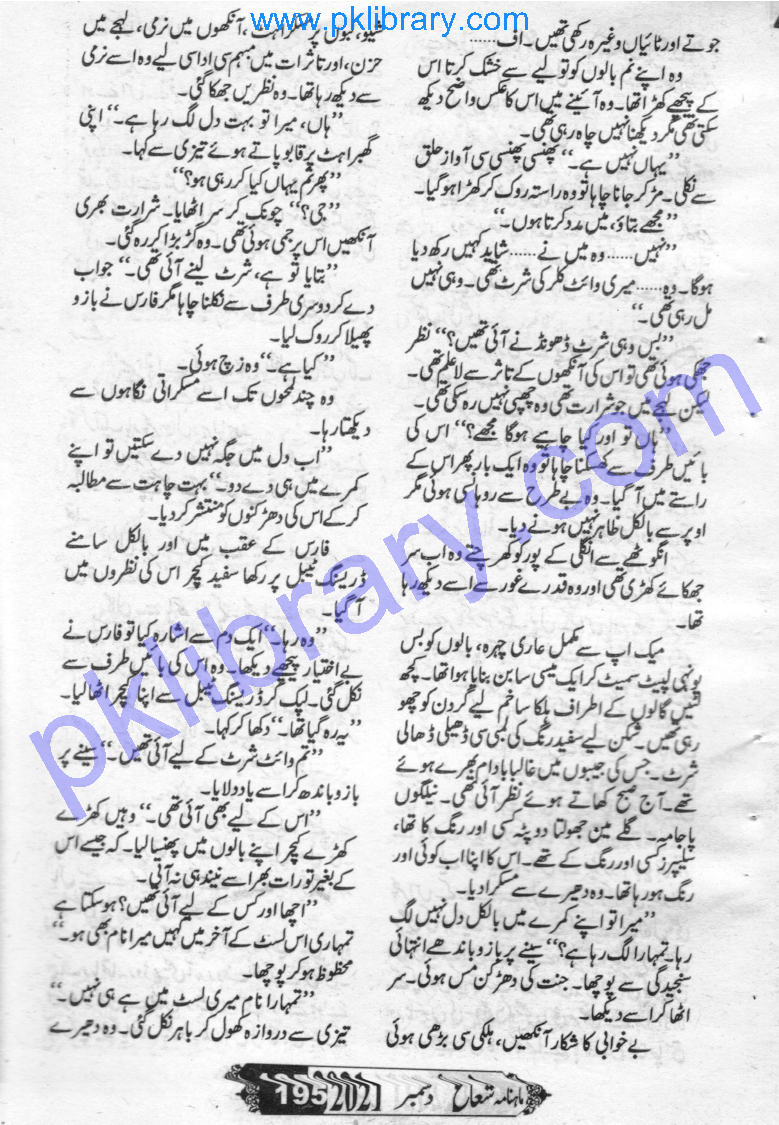 www.pklibrary.com
جوتے اور ٹائیاں وغیرہ رکھی تھیں۔ اف......
وہ اپنے نم بالوں کو تولیے سے خشک کرتا اس
کے پیچھے کھڑا تھا۔ وہ آئینے میں اس کا عکس واضح دیکھ
سکتی تھی مگر دیکھنا نہیں چاہ رہی تھی۔
”یہاں نہیں ہے۔“ پھنسی پھنسی سی آواز حلق
سے نکلی۔ مڑ کر جانا چاہا تو وہ راستہ روک کر کھڑا ہو گیا۔
”مجھے بتاؤ، میں مدد کرتا ہوں۔“
”نہیں...... وہ میں نے...... شاید کہیں رکھ دیا
ہوگا۔ وہ...... میری وائٹ کلر کی شرٹ تھی۔ وہی نہیں
مل رہی تھی۔“
”بس وہی شرٹ ڈھونڈنے آئی تھیں؟“ نظر
جھکی ہوئی تھی تو اس کی آنکھوں کے تاثر سے لاعلم تھی۔
لیکن لہجے میں جو شرارت تھی وہ چھپی نہیں رہ سکی تھی۔
”ہاں تو اور کیا چاہیے ہوگا مجھے؟“ اس کی
بائیں طرف سے کھسکنا چاہا تو وہ ایک بار پھر اس کے
راستے میں آ گیا۔ وہ بے طرح سے روہانسی ہوئی مگر
اوپر سے بالکل ظاہر نہیں ہونے دیا۔
انگوٹھے سے انگلی کے پور کو کھرچتے وہ اب سر
جھکائے کھڑی تھی اور وہ قدرے غور سے اسے دیکھ رہا
تھا۔
میک اپ سے مکمل عاری چہرہ، بالوں کو بس
یونہی لپیٹ سمیٹ کر ایک میسی سا بن بنایا ہوا تھا۔ کچھ
لٹیں گالوں کے اطراف ہلکا سا خم لیے گردن کو چھو
رہی تھیں۔ شکن لیے سفید رنگ کی لمبی سی ڈھیلی ڈھالی
شرٹ۔ جس کی جیبوں میں غالباً بادام بھرے ہوئے
تھے۔ آج صبح کھاتے ہوئے نظر آئی تھی۔ نیلگوں
پاجامہ۔ گلے مین جھولتا دوپٹہ کسی اور رنگ کا تھا،
سلیپرز کسی اور رنگ کے تھے۔ اس کا اپنا اب کوئی اور
رنگ ہو رہا تھا۔ وہ دھیرے سے مسکرا دیا۔
”میرا تو اپنے کمرے میں بالکل دل نہیں لگ
رہا۔ تمہارا لگ رہا ہے؟“ سینے پر بازو باندھے انتہائی
سنجیدگی سے پوچھا۔ جنت کی دھڑکن مس ہوئی۔ سر
اٹھا کر اسے دیکھا۔
بے خوابی کا شکار آنکھیں، ہلکی سی بڑھی ہوئی
شیو، لبوں پر مسکراہٹ، آنکھوں میں نرمی، لہجے میں
حزن، اور تاثرات میں مبہم سی اداسی لیے وہ اسے نرمی
سے دیکھ رہا تھا۔ وہ نظریں جھکا گئی۔
”ہاں، میرا تو بہت دل لگ رہا ہے۔“ اپنی
گھبراہٹ پر قابو پاتے ہوئے تیزی سے کہا۔
”پھر تم یہاں کیا کر رہی ہو؟“
”جی؟“ چونک کر سر اٹھایا۔ شرارت بھری
آنکھیں اس پر جمی ہوئی تھی۔ وہ گڑبڑا کر رہ گئی۔
”بتایا تو ہے، شرٹ لینے آئی تھی۔“ جواب
دے کر دوسری طرف سے نکلنا چاہا مگر فارس نے بازو
پھیلا کر روک لیا۔
”کیا ہے۔“ وہ زچ ہوئی۔
وہ چند لمحوں تک اسے مسکراتی نگاہوں سے
دیکھتا رہا۔
”اب دل میں جگہ نہیں دے سکتیں تو اپنے
کمرے میں ہی دے دو۔“ بہت چاہت سے مطالبہ
کر کے اس کی دھڑکنوں کو منتشر کر دیا۔
فارس کے عقب میں اور بالکل سامنے
ڈریسنگ ٹیبل پر رکھا سفید کیچر اس کی نظروں میں
آ گیا۔
”وہ رہا۔“ ایک دم سے اشارہ کیا تو فارس نے
بے اختیار پیچھے دیکھا۔ وہ اس کی بائیں طرف سے
نکل گئی۔ لپک کر ڈریسنگ ٹیبل سے اپنا کیچر اٹھا لیا۔
”یہ رہ گیا تھا۔“ دکھا کر کہا۔
”تم وائٹ شرٹ کے لیے آئی تھیں۔“ سینے پر
بازو باندھ کر اسے یاد دلایا۔
”اس کے لیے بھی آئی تھی۔“ وہیں کھڑے
کھڑے کیچر اپنے بالوں میں پھنسا لیا۔ کہ جیسے اس
کے بغیر تو رات بھر اسے نیند ہی نہ آئی۔
”اچھا اور کس کے لیے آئی تھیں؟ ہو سکتا ہے
تمہاری اس لسٹ کے آخر میں کہیں میرا نام بھی ہو۔“
محظوظ ہو کر پوچھا۔
”تمہارا نام میری لسٹ میں ہے ہی نہیں۔“
تیزی سے دروازہ کھول کر باہر نکل گئی۔ وہ دھیرے
ماہنامہ شعاع دسمبر 2021 195
pklibrary.com